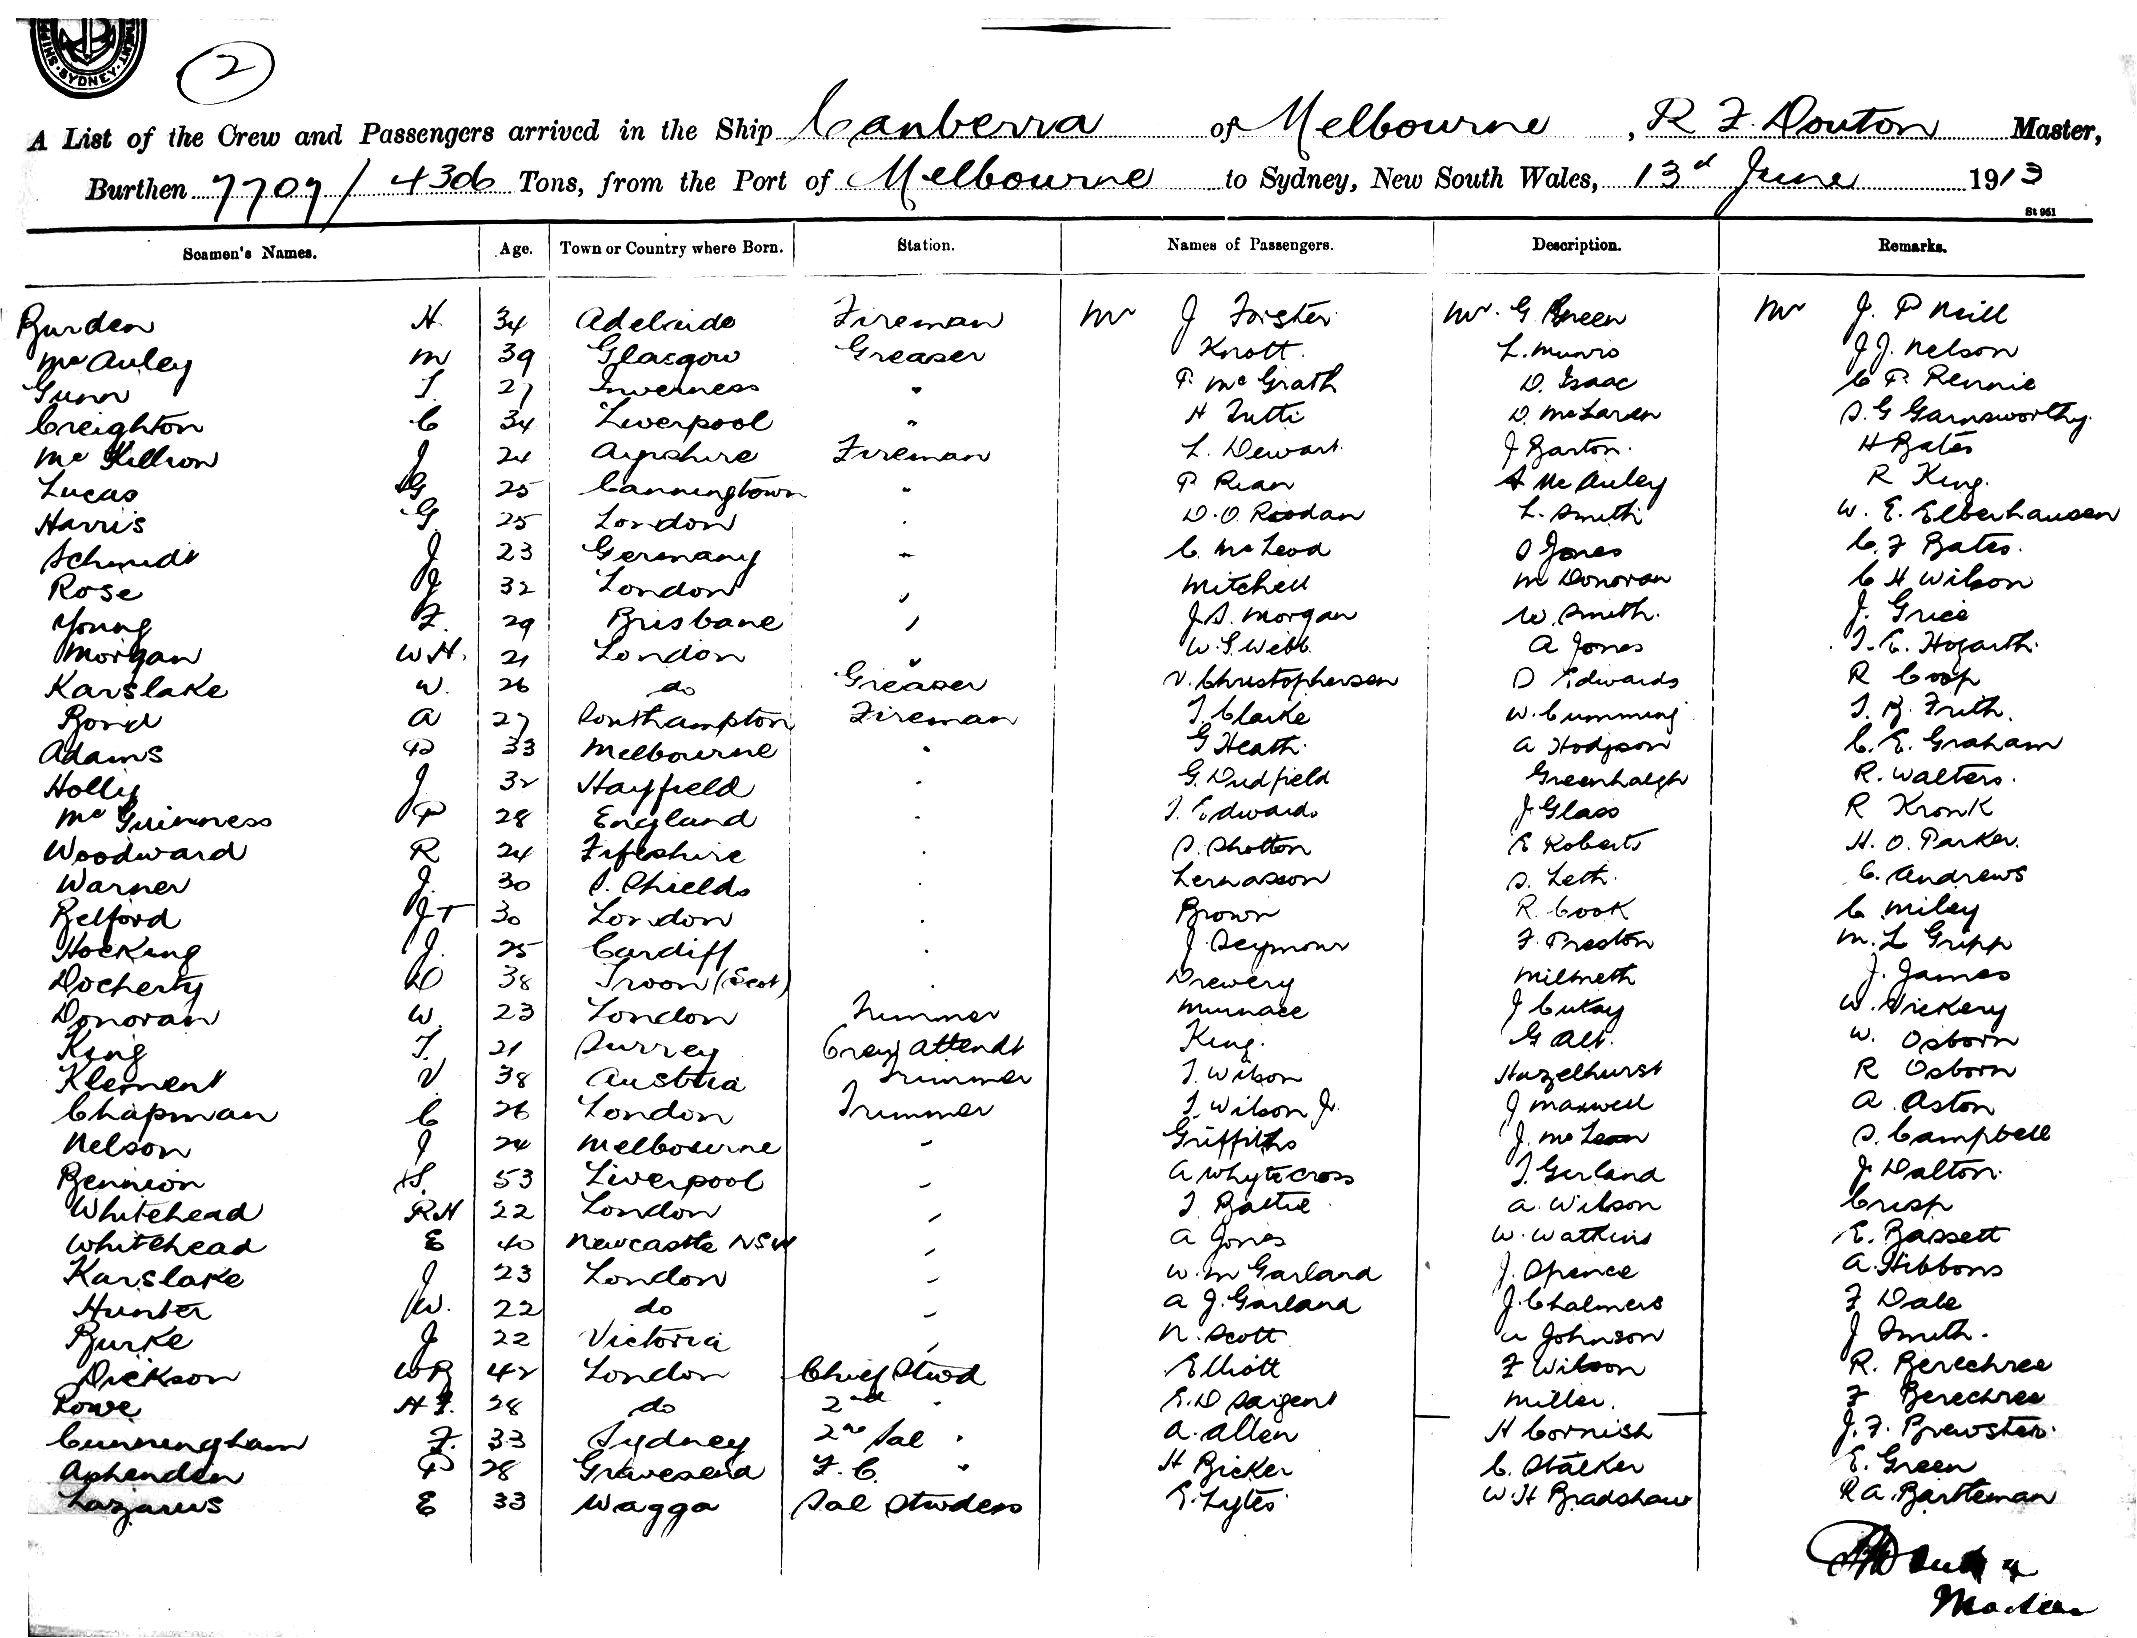 SYDNEY
2
A List of the Crew and Passengers arrived in the Ship Canberra of Melbourne, R F. Douton Master,
Burthen 7707 / 4306 Tons, from the Port of Melbourne to Sydney, New South Wales, 13d June 1913
St 951
Seamen's Names. Age. Town or Country where Born. Station. Names of Passengers. Description. Remarks.
Burden H. 34 Adelaide Fireman Mr J Forster Mr. G. Green Mr J. P Neill
McAuley M 39 Glasgow Greaser Knott. L. Munro J J. Nelson
Gunn T. 27 Inverness " P. McGrath D. Isaac C P. Rennie
Creighton C 34 Liverpool " H Tutti D. McLaren S. G Garnsworthy.
Mc Killion J 24 Ayrshire Fireman L. Dewart. J Barton. H Bates
Lucas G 25 Canningtown " P Rian A McAuley R King.
Harris G. 25 London " D. O. Riodan L. Smith W. E. Elberhausen
Schmidt J 23 Germany " C. McLeod O Jones C. F Bates.
Rose J 32 London " Mitchell M Donovan C H Wilson
Young F. 29 Brisbane " J. S. Morgan W. Smith. J. Grice
Morgan W H. 21 London " W. G. Webb A Jones T. E. Hogarth.
Karslake W. 26 do Greaser V. Christophersen D Edwards R Coop
Bond A 27 Southampton Fireman T. Clarke W. Cumming T. B. Frith.
Adams P 33 Melbourne " G Heath. A Hodgson C. E. Graham
Holly J 32 Hayfield " G. Dudfield Greenhalgh R. Walters.
Mc Guinness P 28 England " T. Edwards J Glass R Kronk
Woodward R 24 Fifeshire " S. Shotton E Roberts H. O. Parker.
Warner J. 30 S. Shields " Lernasson S. Leth. C. Andrews
Belford J T 30 London " Brown R. Cook C Miley
Hocking J. 25 Cardiff " J. Seymour F. Preston M. L Gripp
Docherty D 38 Troon (Scot) " Drewery Milmeth J. James
Donovan W. 23 London Trimmer Murnace J Cukay W. Vickery
King T. 21 Surrey Attendt King. G Alt. W. Osborn
Klement V 38 Austria Trimmer T. Wilson Hazelhurst R Osborn
Chapman C 26 London Trimmer T. Wilson Jr. J Maxwell A. Aston
Nelson J 24 Melbourne " Griffiths J. McLean D. Campbell
Bennion S. 53 Liverpool " A Whytecross T. Gerland J. Dalton.
Whitehead R H 22 London " T Battie A. Wilson Crisp
Whitehead E 40 Newcastle NSW " A Jones W. Watkins E. Bassett
Karslake J 23 London " W. M Garland J. Spence A. Hibbons
Hunter J W. 22 do " A J. Garland J. Chalmers F Dale
Burke J 22 Victoria " N. Scott A Johnson J Smith.
Dickson W B 42 London Chief Stwd Elliott F Wilson R. Berechree
Rowe H J. 28 do 2nd " E. D Sargent Miller. F Berechree
Cunningham F. 33 Sydney 2nd Sal " A. Allen H Cornish J. F. Brewster.
Ashenden P 28 Gravesend F. C. " H Bicker C. Stalker E. Green
Lazarus E 33 Wagga Sal Stwdess E. Lytes W. H Bradshaw R A. Barteman
Master